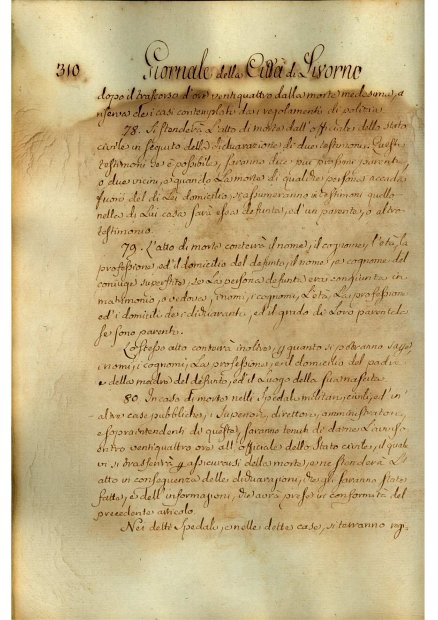 310 Giornale della Città di Livorno
dopo il trascorso d'ore ventiquattro dalla morte medesima, a
riserva dei casi contemplati dai regolamenti di polizia
78. Si stenderà L'atto di morte dall'officiale dello stato
civile in seguito della dichiarazione di due testimoni. Questi
testimoni se è possibile, saranno due più prossimi parenti,
o due vicini, o quando La morte di qualche persona accada
fuori del di Lei domicilio, si assumeranno a testimoni quello
nella di Lui casa sarà essa defunta, ed un parente, o altro
testimonio.
79. L'atto di morte conterrà il nome, il cognome, l'età, la
professione, ed il domicilio del defunto, il nome, e cognome del
coniuge superstite, se La persona defunta era congiunta in
matrimonio, o vedova, i nomi, i cognomi, L'età, La professione
ed i domicili dei dichiaranti, ed il grado di Loro parentela
se sono parenti.
Lo stesso atto conterrà inoltre, per quanto si potranno sapere
i nomi, i cognomi, La professione, e il domicilio del padre
e della madre del defunto, ed il Luogo della sua nascita.
80. In caso di morte nelli Spedali militari, civili, ed in
altre case pubbliche, i Superiori, direttori, amministratori,
e soprintendenti di queste, saranno tenuti di darne L'avviso
entro ventiquattro ore all'officiale dello Stato civile, il quale
vi si trasferirà per assicurarsi della morte, e ne stenderà L'
atto in conseguenza delle dichiarazioni, che gli saranno state
fatte, e dell'informazioni, che avrà prese in conformità del
precedente articolo.
Nei detti Spedali, e nelle dette case, si terranno regi-